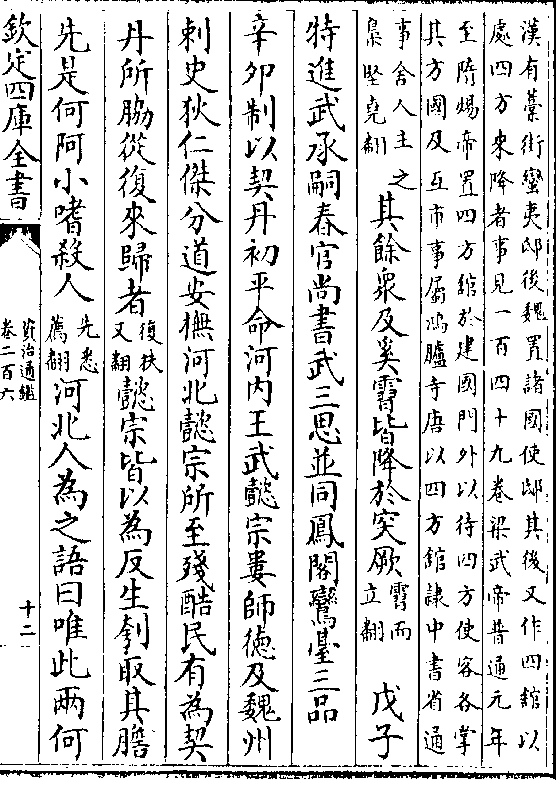 漢有藁街蠻夷邸後魏置諸國使邸其後又作四館以
處四方來降者事見一百四十九卷梁武帝普通元年
至隋煬帝置四方館於建國門外以待四方使客各掌
其方國及互市事屬鴻臚寺唐以四方館隷中書省通
事舍人主之
梟堅堯翻
其餘衆及奚霫皆降於突厥
霫而
立翻
戊子
特進武承嗣春官尚書武三思並同鳳閣鸞臺三品
辛卯制以契丹初平命河内王武懿宗婁師德及魏州
刺史狄仁傑分道安撫河北懿宗所至殘酷民有為契
丹所脇從復來歸者
復扶
又翻
懿宗皆以為反生刳取其膽
先是何阿小嗜殺人
先悉
薦翻
河北人為之語曰唯此兩何
欽定四庫全書
資治通鑑
卷二百六
十二